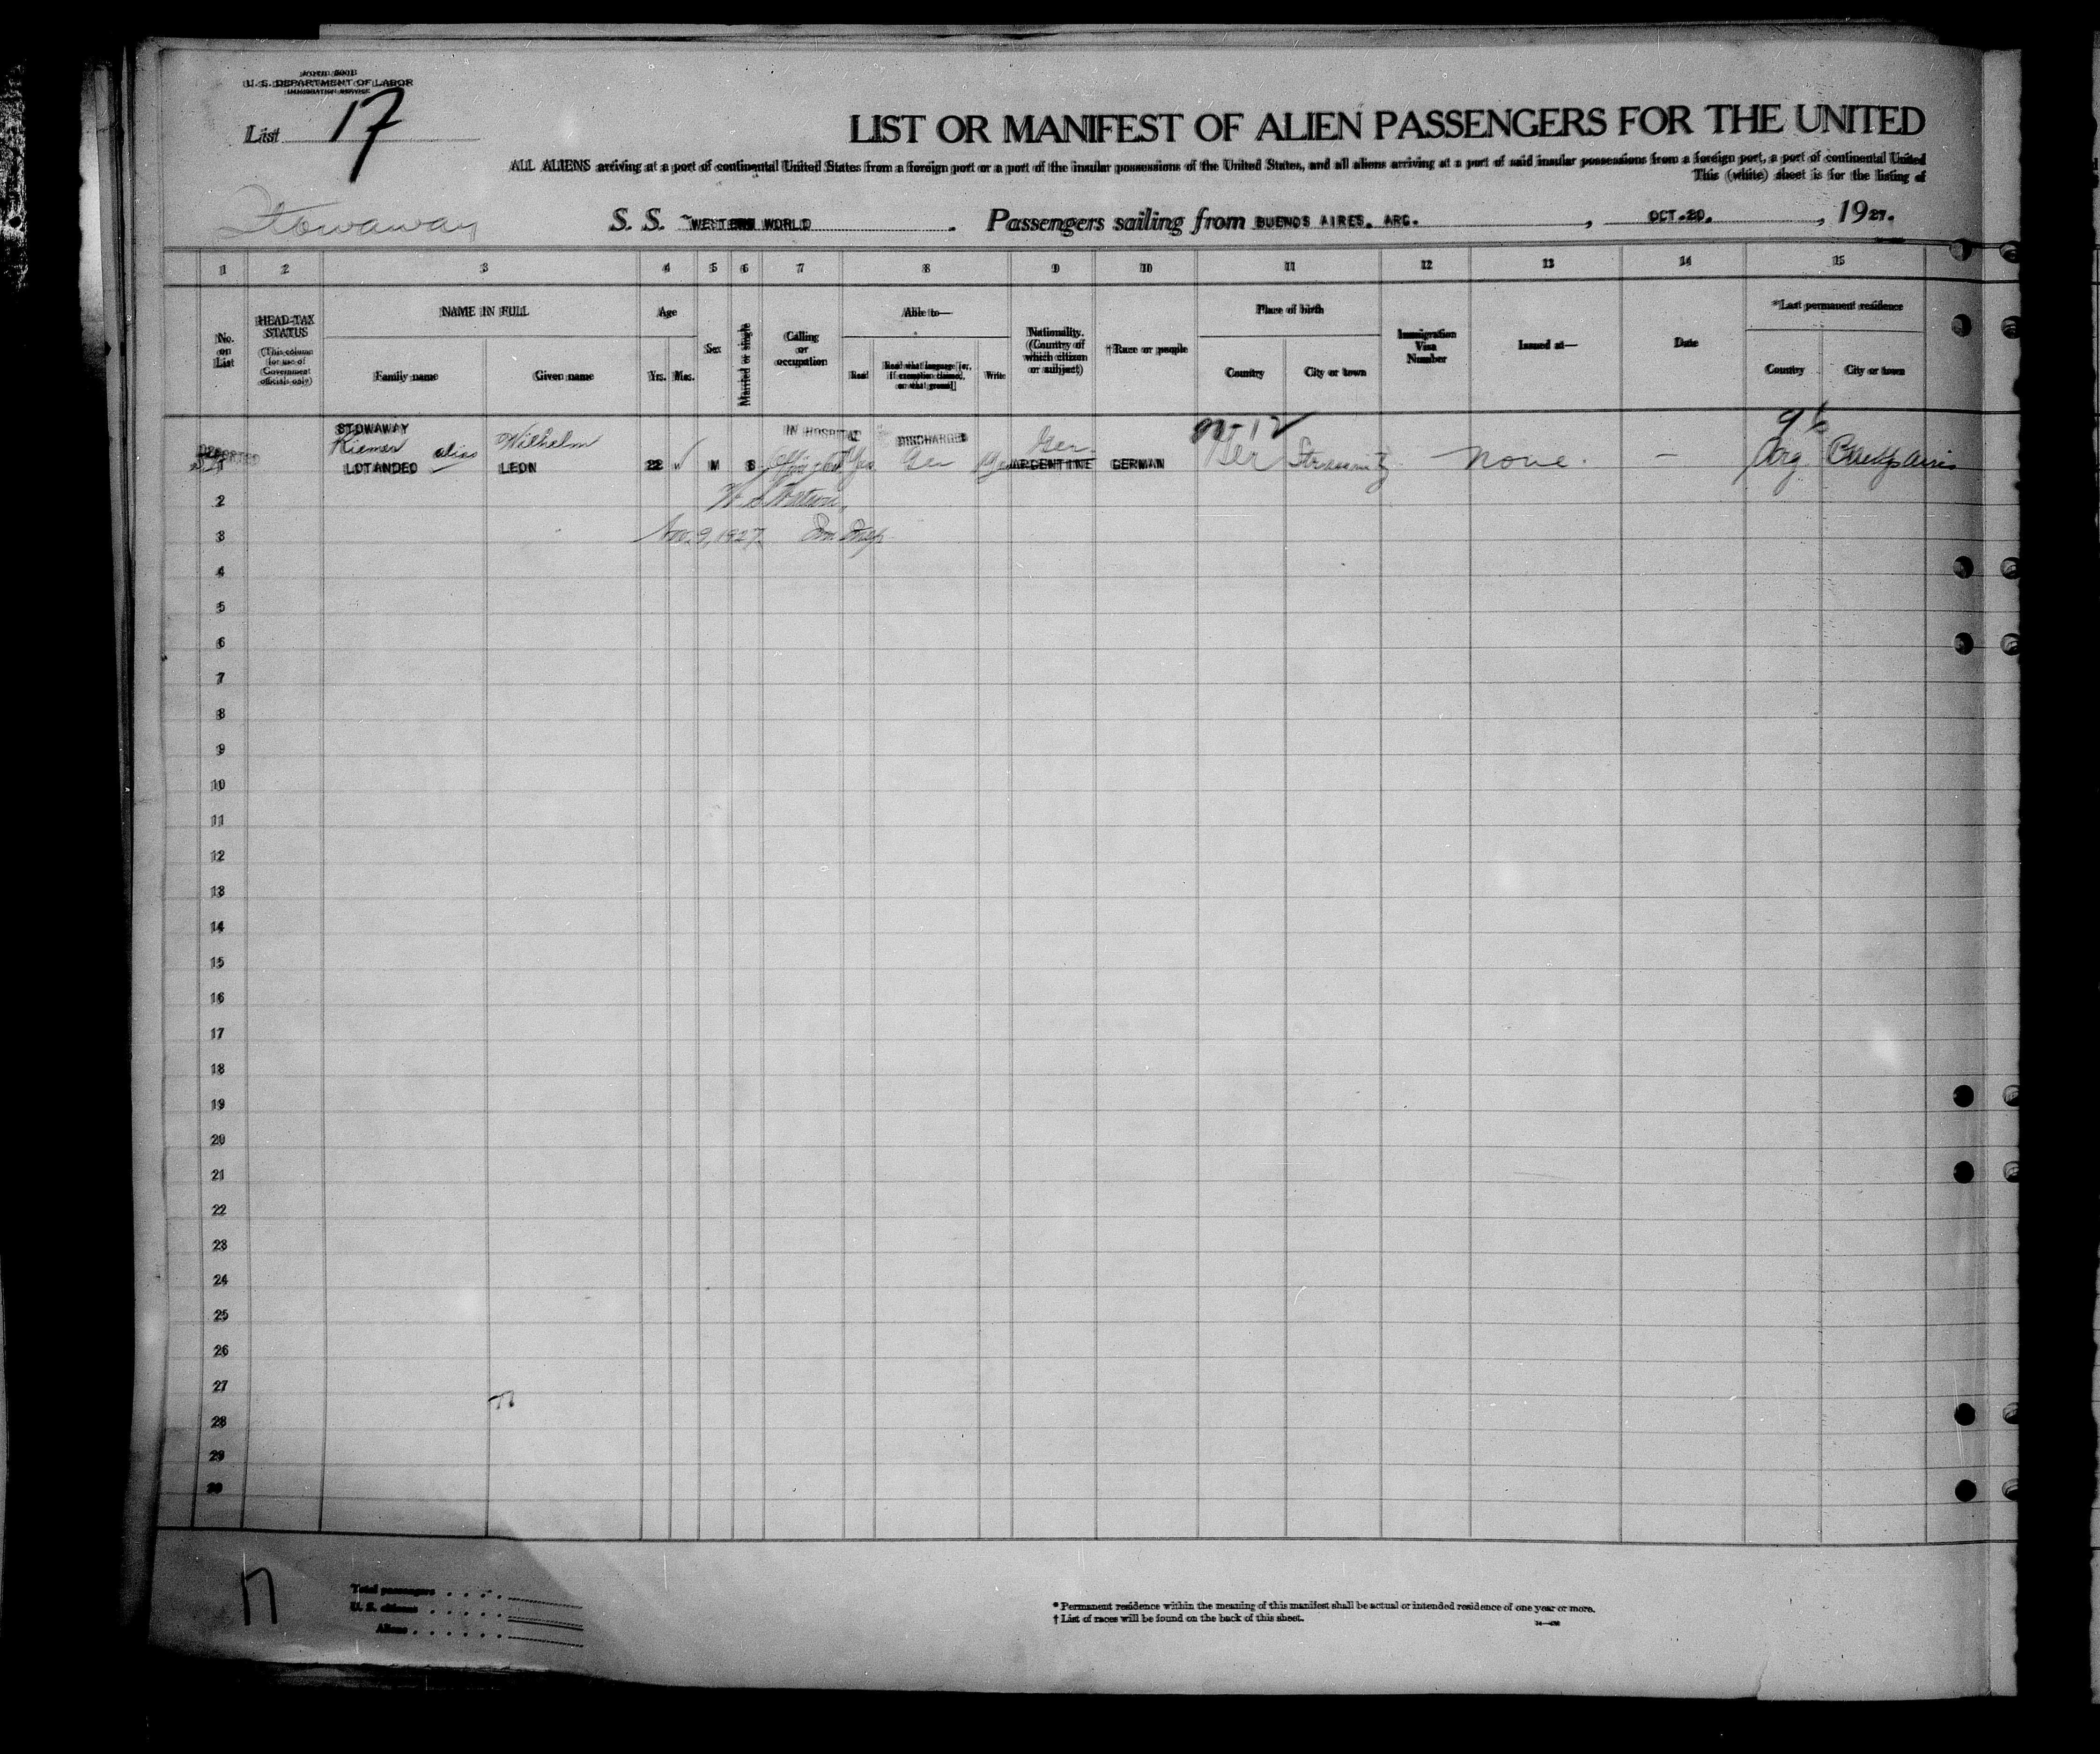 FORM 500B
U. S. DEPARTMENT OF LABOR
IMMIGRATION SERVICE
List 17
LIST OR MANIFEST OF ALIEN PASSENGERS FOR THE UNITED
ALL ALIENS arriving at a port of continental United States from a foreign port or a port of the insular possessions of the United States, and all aliens arriving at a port of said insular possessions from a foreign port, a port of continental United
This (white) sheet is for the listing of
Stowaway
S. S. WESTERN WORLD . Passengers sailing from BUENOS AIRES. ARG. , OCT.20. , 1927.
1 2 3 4 5 6 7 8 9 10 11 12 13 14 15
No. on List
HEAD-TAX STATUS
(This column for use of Government officials only)
NAME IN FULL
Family name
Given name
Age
Yrs. Mos.
Sex
Married or single
Calling or occupation
Able to—
Read
Read what language [or, if exemption claimed, on what ground]
Write
Nationality. (Country of which citizen or subject)
†Race or people
Place of birth
Country
City or town
Immigration Visa Number
Issued at—
Date
*Last permanent residence
Country
City or town
STOWAWAY IN HOSPITAL DISCHARGED
DEPORTED
Kiemer alias Wilhelm Ger.
1 LOTANDEO LEON 22 M S Yes Ger Yes ARGENTINE GERMAN Ger None. — Arg
2
3 Nov. 9, 1927.
4
5
6
7
8
9
10
11
12
13
14
15
16
17
18
19
20
21
22
23
24
25
26
27
28
29
30
17
Total passengers
U. S. citizens
Aliens
* Permanent residence within the meaning of this manifest shall be actual or intended residence of one year or more.
† List of races will be found on the back of this sheet.